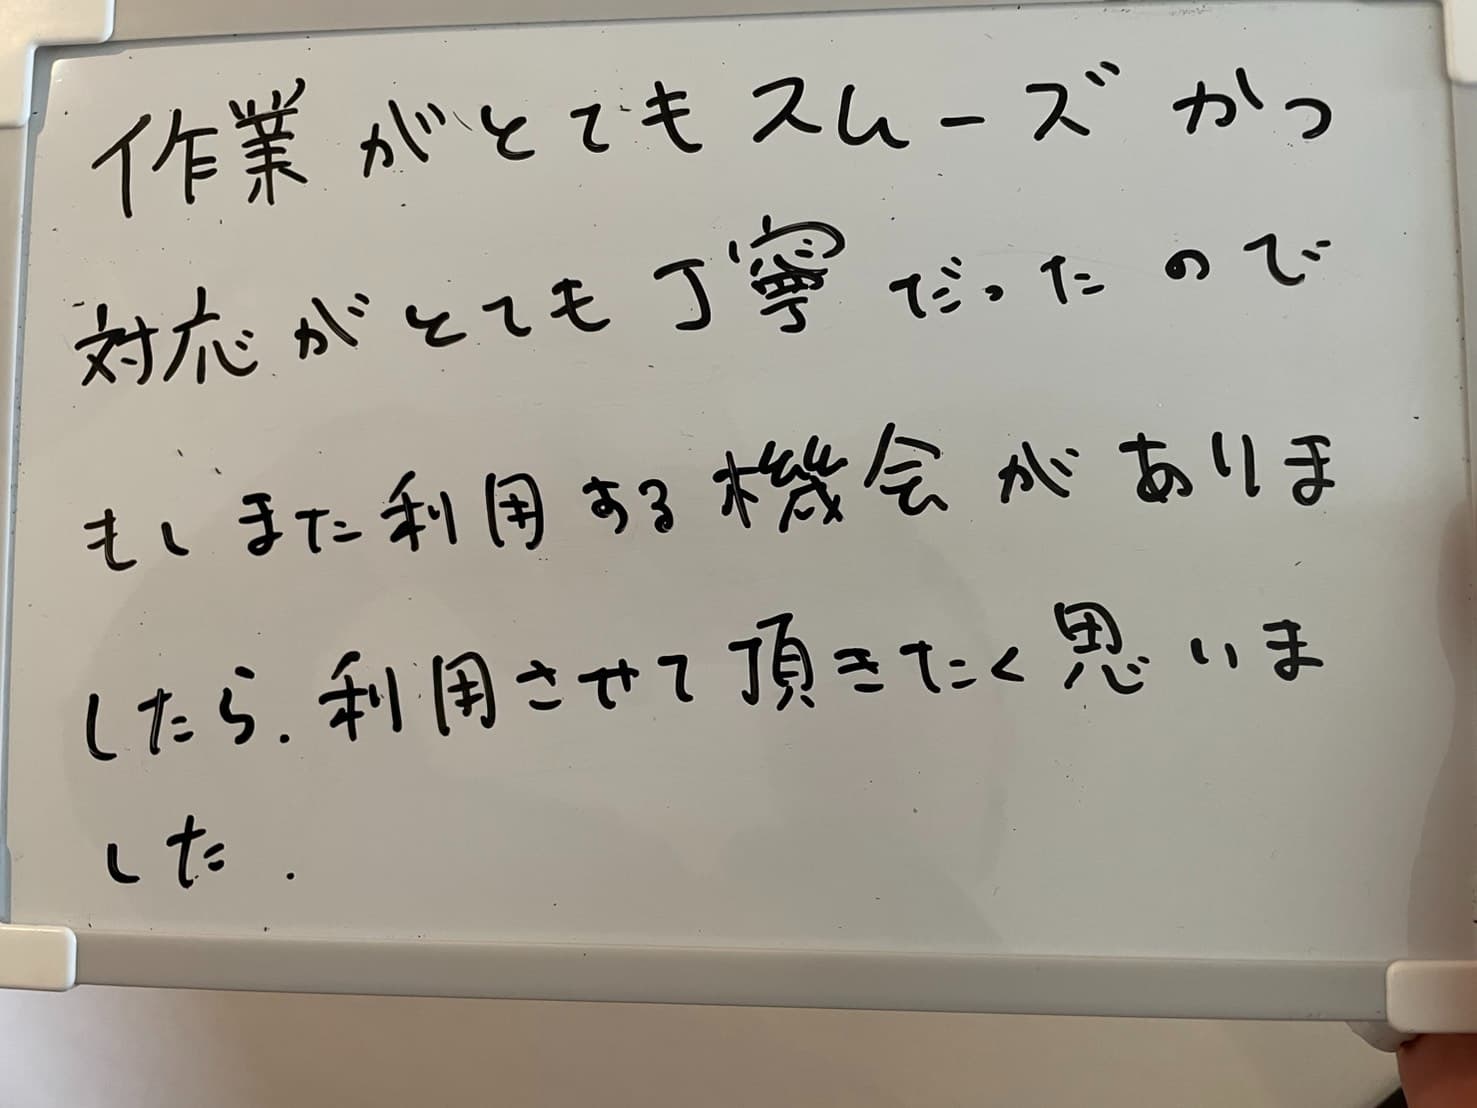 作業がとてもスムーズかつ
対応がとても丁寧だったので
もしまた利用する機会がありま
したら.利用させて頂きたく思いま
した.